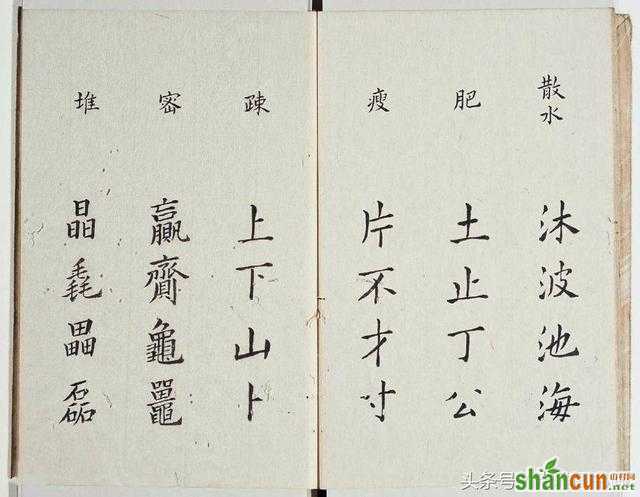 散水
沐波池海
肥
土止丁公
瘦
片不才寸
疎
上下山卜
密
贏齋龜鼉
堆
晶毳畾磊
头条号
shancun
山村网
.net